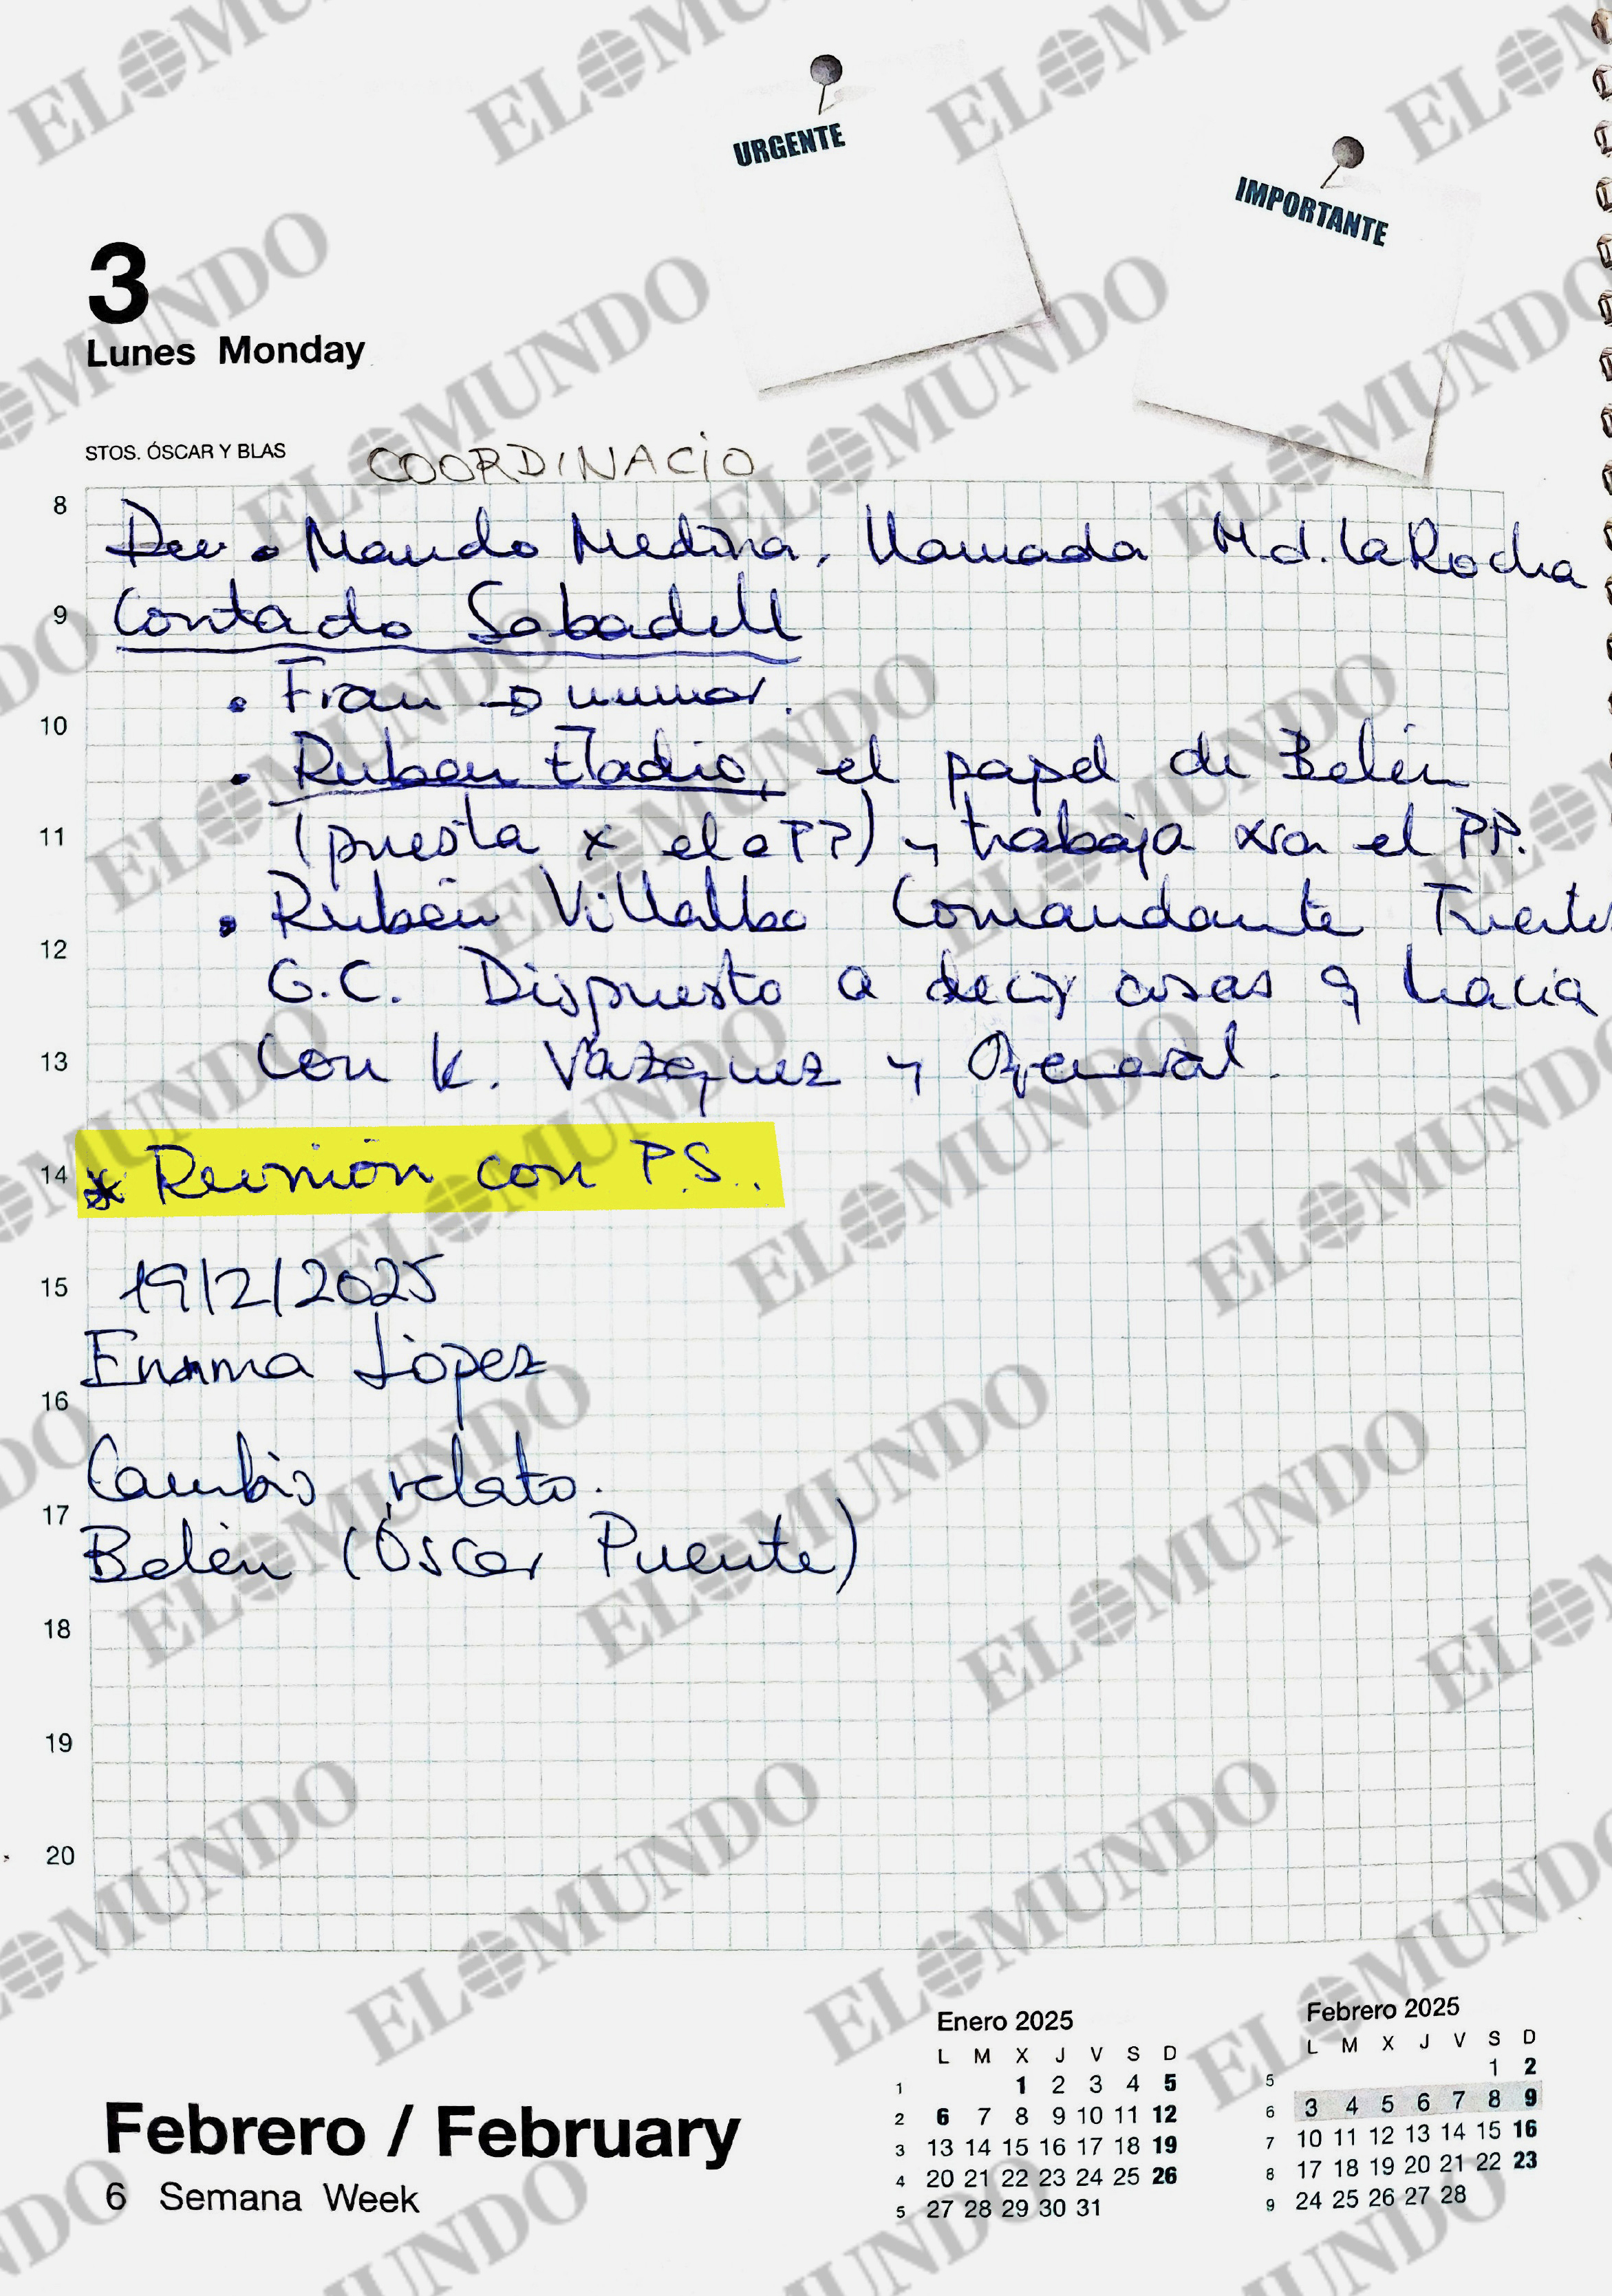 URGENTE
IMPORTANTE
3
Lunes Monday
STOS. ÓSCAR Y BLAS
COORDINACIÓ
8
Mando Medina, llamada M d. la Rocha
9
Contado Sabadell
• Fran →
10
• Ruben Eladio, el papel de Belén
11
(puesta x el PP) y trabaja xra el PP.
• Rubén Villalba Comandante
12
G.C. Dispuesto a decir cosas q hacia
13
con K. Vázquez y General.
14
* Reunión con P.S..
15
19/2/2025
Emma López
16
Cambio relato.
17
Belén (Óscar Puente)
18
19
20
Enero 2025
L M X J V S D
1 1 2 3 4 5
2 6 7 8 9 10 11 12
3 13 14 15 16 17 18 19
4 20 21 22 23 24 25 26
5 27 28 29 30 31
Febrero 2025
L M X J V S D
5 1 2
6 3 4 5 6 7 8 9
7 10 11 12 13 14 15 16
8 17 18 19 20 21 22 23
9 24 25 26 27 28
Febrero / February
6 Semana Week
EL MUNDO